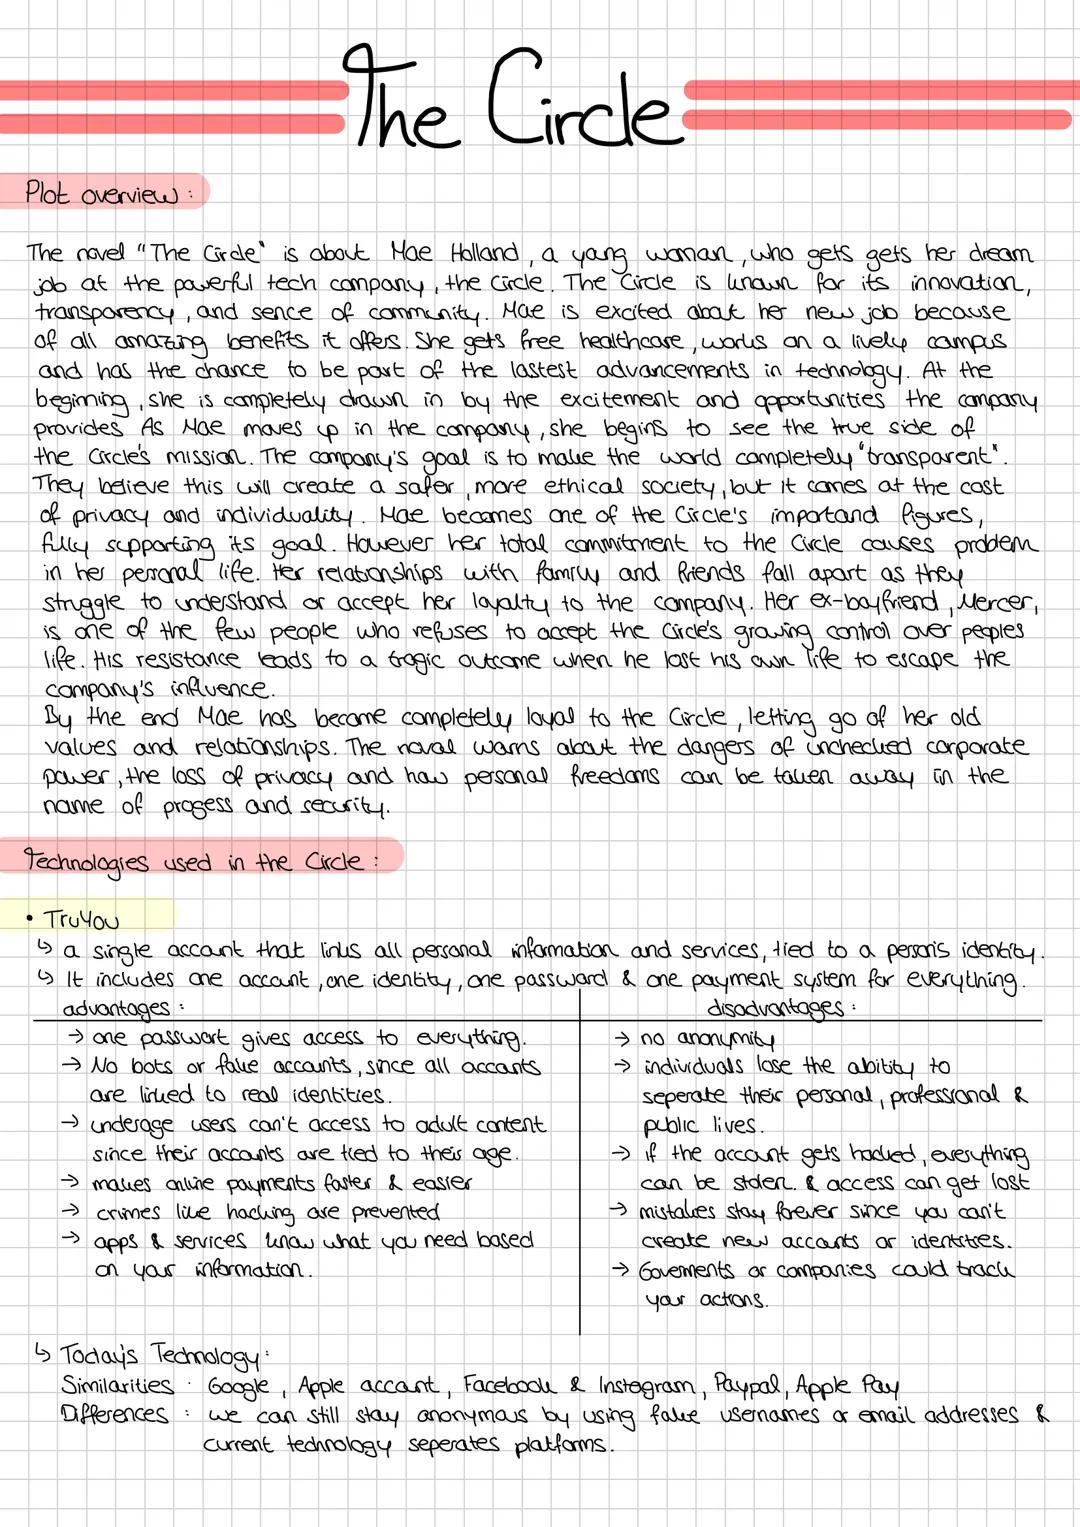 The Circle
Plot overview :
The novel "The Circle" is about Mae Holland, a young woman, who gets gets her dream
job at the powerful tech company, the Circle. The Circle is known for its innovation,
transparency, and sence of community. Mae is excited about her new job because
of all amazing benefits it offers. She gets free healthcare, works on a lively campus
and has the chance to be part of the lastest advancements in technology. At the
beginning, she is completely drawn in by the excitement and opportunities the company
provides As Mae moves up in the company, she begins to see the true side of
the Circle's mission. The company's goal is to make the world completely "transparent".
They believe this will create a safer, more ethical society, but it comes at the cost
of privacy and individuality. Mae becomes one of the Circle's importand figures,
fully supporting its goal. However her total commitment to the Circle causes problem
in her personal life. Her relationships with family and friends fall apart as they
struggle to understand or accept her loyalty to the company. Her ex-boyfriend, Mercer,
is one of the few people who refuses to accept the Circle's growing control over peoples
life. His resistance leads to a tragic outcome when he lost his own life to escape the
company's influence.
By the end Mae has become completely loyal to the Circle, letting go of her old
values and relationships. The noval warns about the dangers of unchecked corporate
power, the loss of privacy and how personal freedoms can be taken away in the
name of progess and security.
Technologies used in the Circle :
• TruYou
↳ a single account that links all personal information and services, tied to a person's identity.
↳ It includes one account, one identity, one password & one payment system for everything.
advantages :
→ one passwort gives access to everything.
→ No bots or fake accounts, since all accounts
are linked to real identities.
→ underage users can't access to adult content
since their accounts are tied to their age.
→ makes online payments faster & easier
→ crimes like hacking are prevented
→ apps & services know what you need based
on your information.
disadvantages :
→ no anonymity
→ individuals lose the ability to
seperate their personal, professional &
public lives.
→ if the account gets hacked, everything
can be stolen. & access can get lost
→ mistakes stay forever since you can't
create new accounts or identities.
→ Goverments or companies could track
your actions.
↳ Today's Technology:
Similarities : Google, Apple account, Facebook & Instagram, Paypal, Apple Pay
Differences : we can still stay anonymous by using fake usernames or email addresses &
current technology seperates platforms.